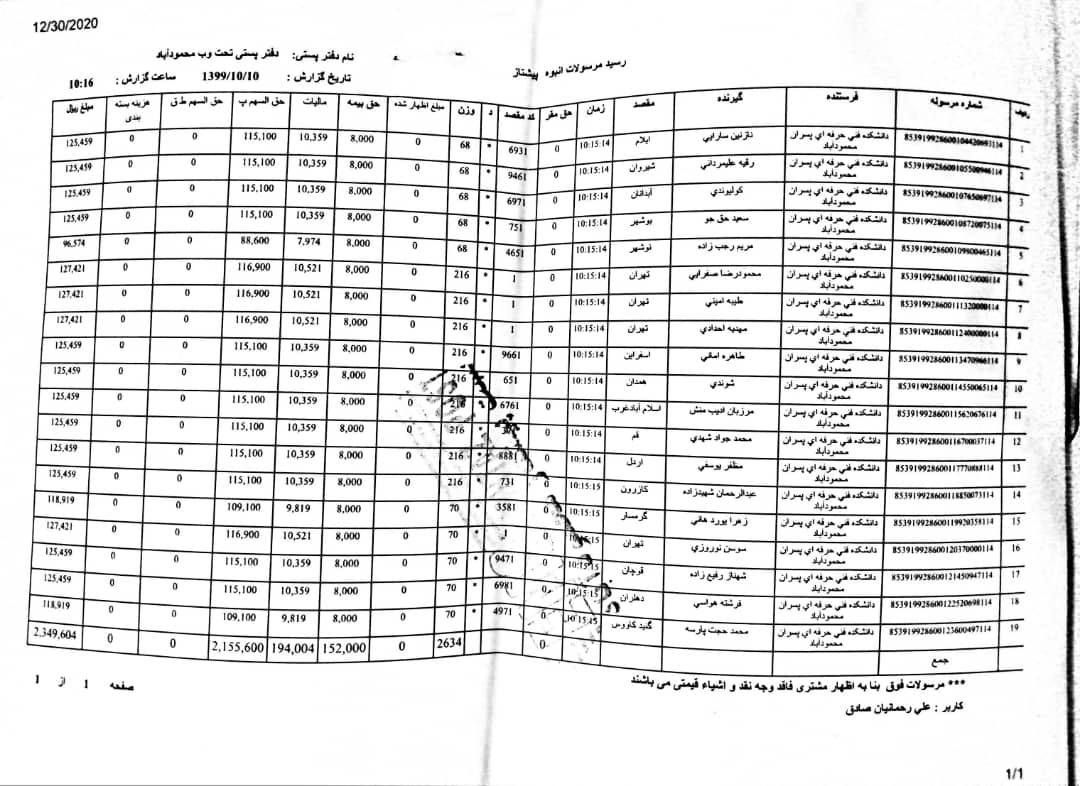 12/30/2020
رسید مرسولات انبوه پیشتاز
نام دفتر پستی: دفتر پستی تحت وب محمودآباد
تاریخ گزارش : 1399/10/10 ساعت گزارش : 10:16
ردیف شماره مرسوله فرستنده گیرنده مقصد زمان حق مقر کد مقصد د وزن مبلغ اظهار شده حق بیمه مالیات حق السهم پ حق السهم ط ق هزینه بسته بندی مبلغ ریال
1 853919928600104420693114 دانشکده فني حرفه اي پسران محمودآباد نازنین سارایي ایلام 10:15:14 0 6931 * 68 0 8,000 10,359 115,100 0 0 125,459
2 853919928600105500946114 دانشکده فني حرفه اي پسران محمودآباد رقیه علیمرداني شیروان 10:15:14 0 9461 * 68 0 8,000 10,359 115,100 0 0 125,459
3 853919928600107650697114 دانشکده فني حرفه اي پسران محمودآباد کولیوندي آبدانان 10:15:14 0 6971 * 68 0 8,000 10,359 115,100 0 0 125,459
4 853919928600108720075114 دانشکده فني حرفه اي پسران محمودآباد سعید حق جو بوشهر 10:15:14 0 751 * 68 0 8,000 10,359 115,100 0 0 125,459
5 853919928600109800465114 دانشکده فني حرفه اي پسران محمودآباد مریم رجب زاده نوشهر 10:15:14 0 4651 * 68 0 8,000 7,974 88,600 0 0 96,574
6 853919928600110250000114 دانشکده فني حرفه اي پسران محمودآباد محمودرضا صفرایي تهران 10:15:14 0 1 * 216 0 8,000 10,521 116,900 0 0 127,421
7 853919928600111320000114 دانشکده فني حرفه اي پسران محمودآباد طیبه امیني تهران 10:15:14 0 1 * 216 0 8,000 10,521 116,900 0 0 127,421
8 853919928600112400000114 دانشکده فني حرفه اي پسران محمودآباد مهدیه احدادي تهران 10:15:14 0 1 * 216 0 8,000 10,521 116,900 0 0 127,421
9 853919928600113470966114 دانشکده فني حرفه اي پسران محمودآباد طاهره اماني اسفراین 10:15:14 0 9661 * 216 0 8,000 10,359 115,100 0 0 125,459
10 853919928600114550065114 دانشکده فني حرفه اي پسران محمودآباد شوندي همدان 10:15:14 0 651 216 0 8,000 10,359 115,100 0 0 125,459
11 853919928600115620676114 دانشکده فني حرفه اي پسران محمودآباد مرزبان ادیب منش اسلام آبادغرب 10:15:14 0 6761 216 0 8,000 10,359 115,100 0 0 125,459
12 853919928600116700037114 دانشکده فني حرفه اي پسران محمودآباد محمد جواد شهدي قم 10:15:14 0 216 0 8,000 10,359 115,100 0 0 125,459
13 853919928600117770888114 دانشکده فني حرفه اي پسران محمودآباد مظفر یوسفي اردل 10:15:14 0 8881 * 216 0 8,000 10,359 115,100 0 0 125,459
14 853919928600118850073114 دانشکده فني حرفه اي پسران محمودآباد عبدالرحمان شهیدزاده کازرون 10:15:15 0 731 * 216 0 8,000 10,359 115,100 0 0 125,459
15 853919928600119920358114 دانشکده فني حرفه اي پسران محمودآباد زهرا یورد هاني گرمسار 10:15:15 0 3581 * 70 0 8,000 9,819 109,100 0 0 118,919
16 853919928600120370000114 دانشکده فني حرفه اي پسران محمودآباد سوسن نوروزي تهران 10:15:15 0 1 * 70 0 8,000 10,521 116,900 0 0 127,421
17 853919928600121450947114 دانشکده فني حرفه اي پسران محمودآباد شهناز رفیع زاده قوچان 10:15:15 0 9471 * 70 0 8,000 10,359 115,100 0 0 125,459
18 853919928600122520698114 دانشکده فني حرفه اي پسران محمودآباد فرشته هواسي دهلران 10:15:15 0 6981 * 70 0 8,000 10,359 115,100 0 0 125,459
19 853919928600123600497114 دانشکده فني حرفه اي پسران محمودآباد محمد حجت پارسه گنبد کاووس 10:15:15 0 4971 * 70 0 8,000 9,819 109,100 0 0 118,919
جمع 0 2634 0 152,000 194,004 2,155,600 0 0 2,349,604
*** مرسولات فوق بنا به اظهار مشتری فاقد وجه نقد و اشیاء قیمتی می باشند
کاربر : علي رحمانیان صادق
صفحه 1 از 1
1/1